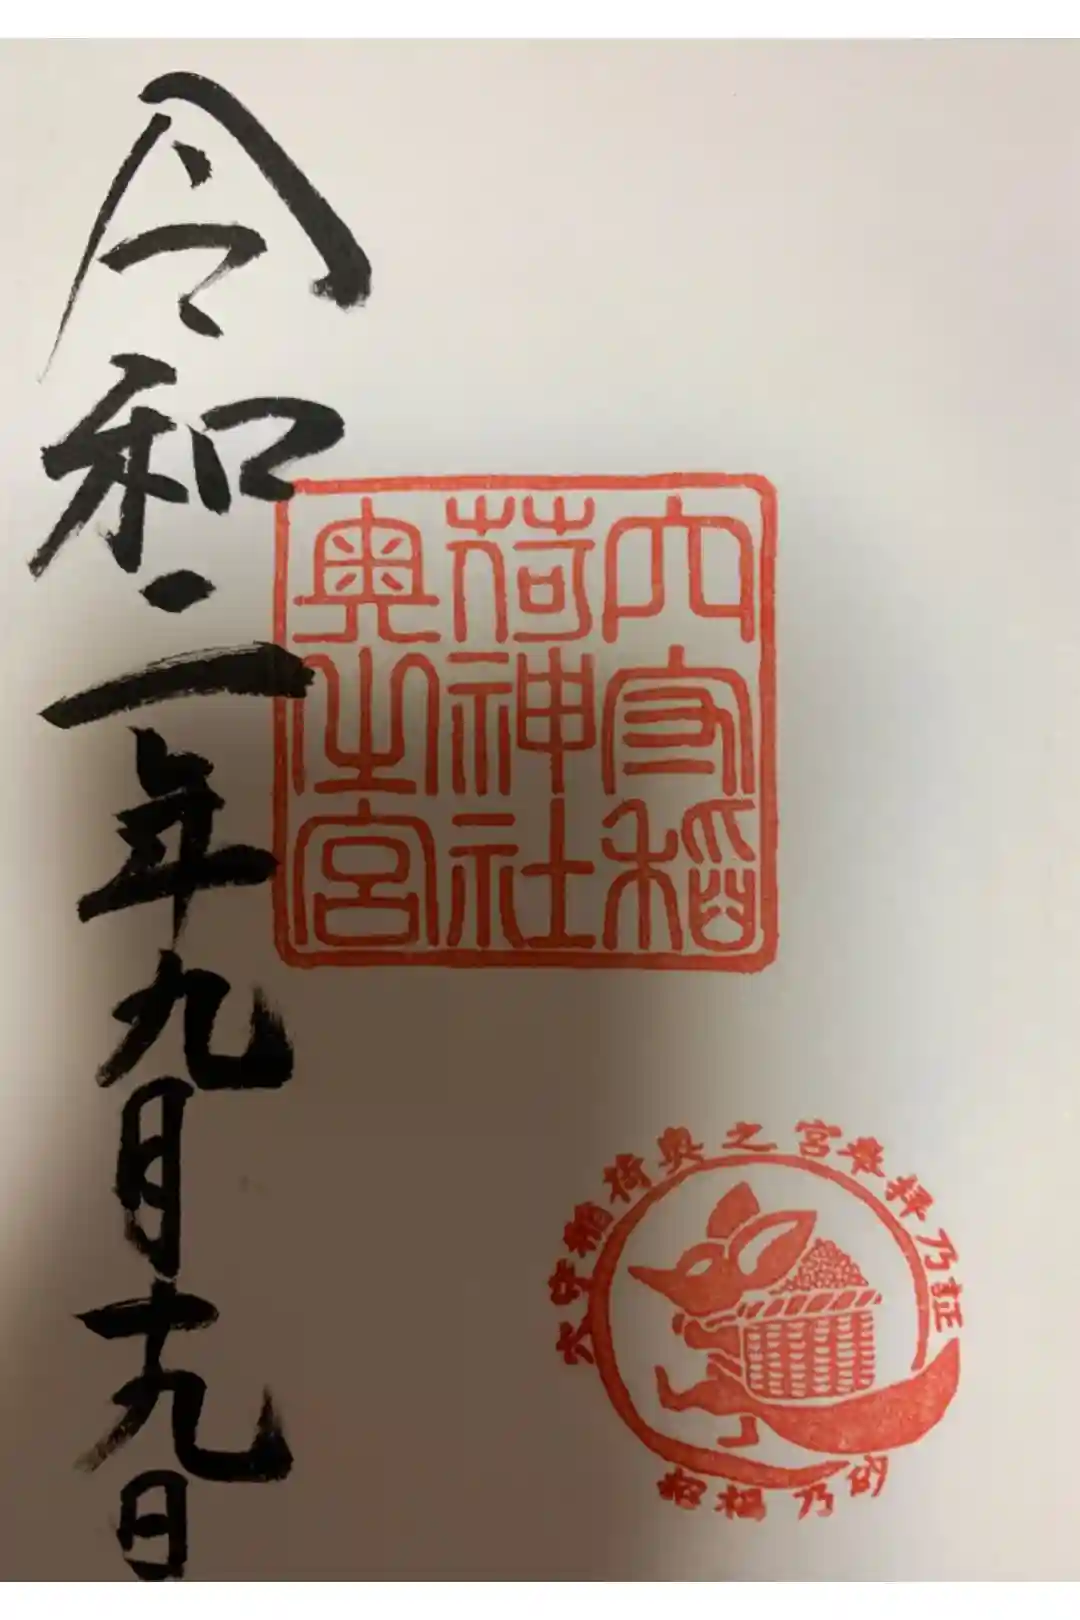 穴守稲
荷神社
奥之宮
令和二年九月十九日
穴守稲荷奥之宮参拝乃証
招福乃砂